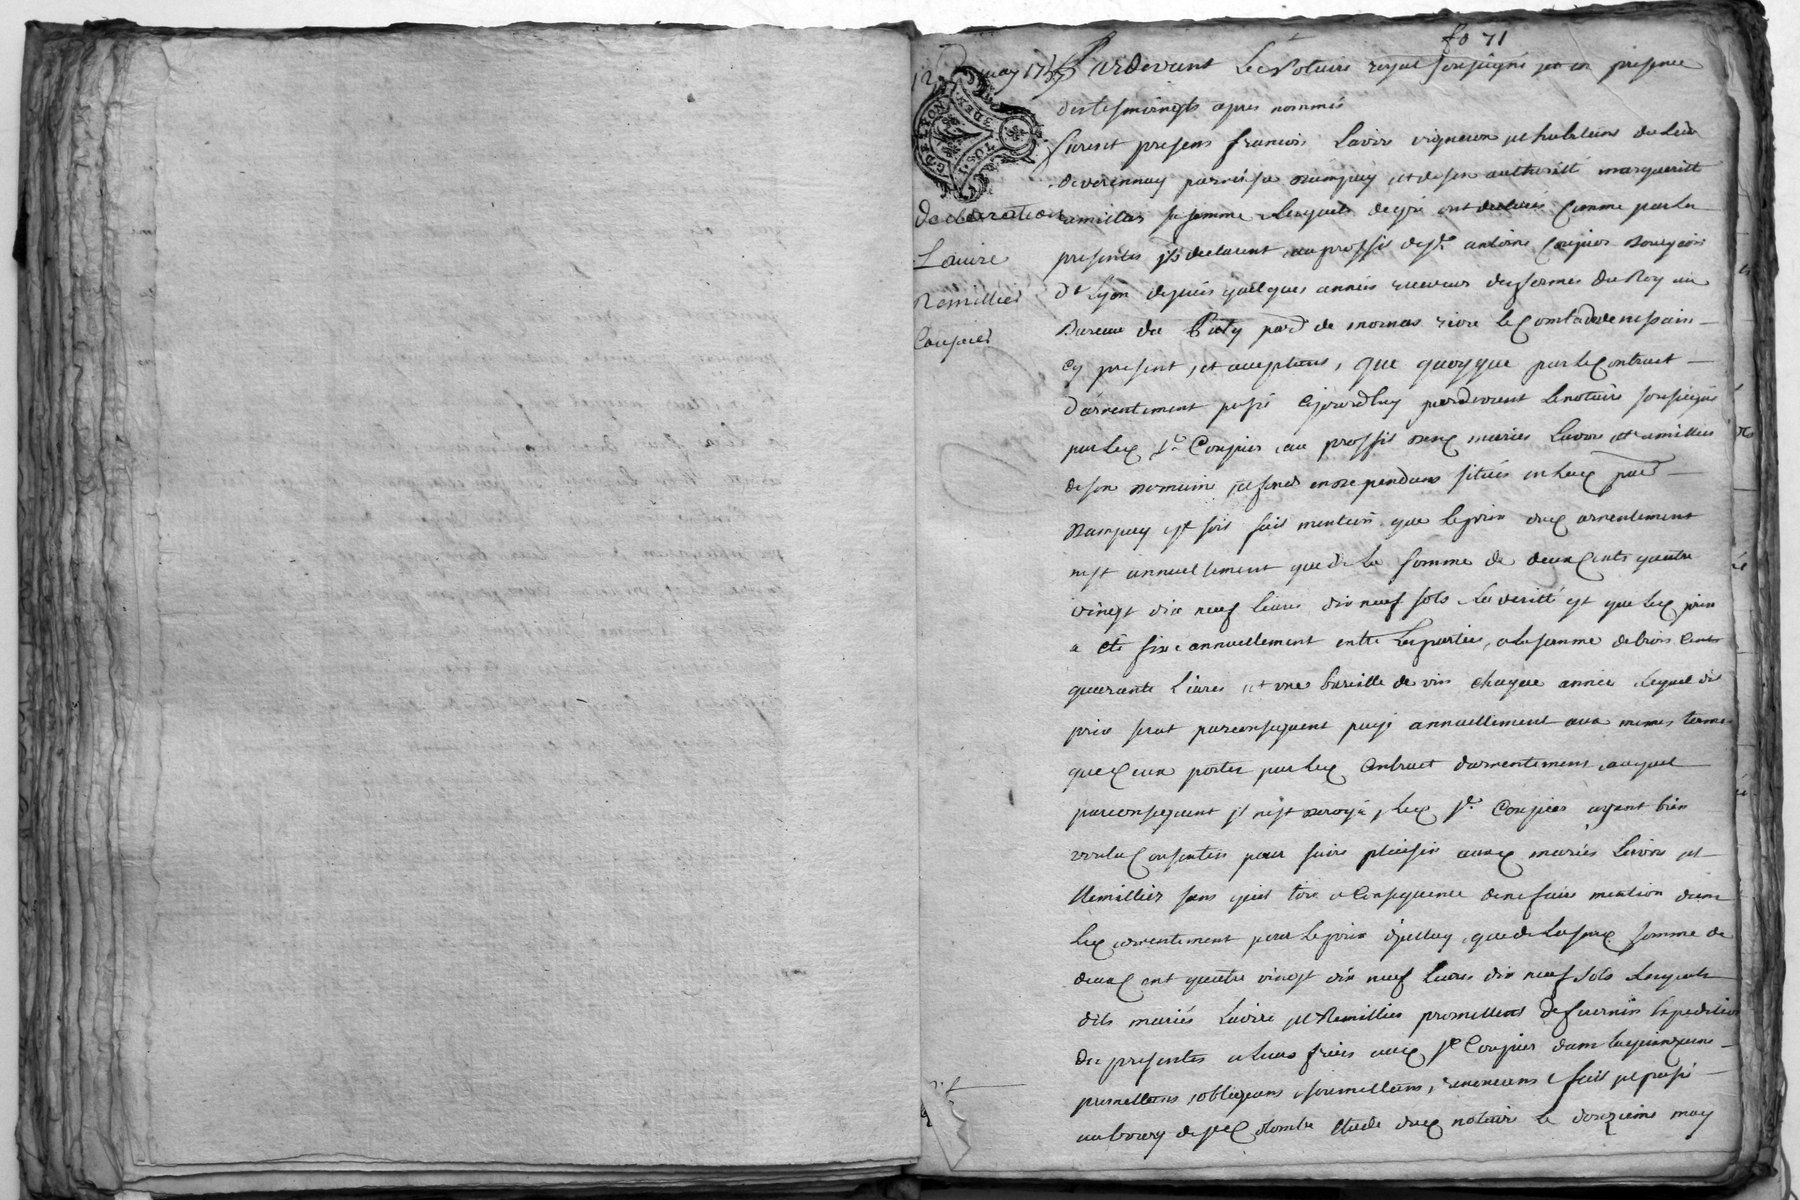 fo 71
12 may 17
Pardevant Le Notaire royal soussigné et en presence
des tesmoingts apres nommés
furent presens francois Lavire vigneron et habitans du lieu
de verennay parroisse Dampuy et de son authoritté margueritte
remillier sa femme Lesquels de gré ont declaré Comme par la
presentes ils declarent au proffit de sr antoine Coupier Bourgeois
De Lyon depuis quelques années receveur des fermes du Roy au
Bureau du parsse de mornas Le Comtadvenessain
Cy present et aceptans, que quoyque par le Contract
darrentement passé ejourdhuy pardevant Le notaire soussigné
par led Sr Coupier au proffit desd mariés Lavire et remillier
de son domaine et fonds en dependans situés en lad parsse
Dampuy yt soit fait mention que le prix dud arrentement
nest annuellement que de La somme de deux Cents quatre
vingt dix neuf livres dix neuf sols La verité est que led prix
a eté fixé annuellement entre Les parties a la somme de trois Cents
quarante Livres et une bareille de vin chaque année lequel dit
prix serat parconsequent payé annuellement aux memes termes
que Ceux portés par led Contract darrentement auquel
parconsequent il nest derogé, led Sr Coupier ayant bien
voulu Consentir pour faire plaisir auxd mariés Lavire et
Remillier sans quil tire a Consequence de ne faire mention dans
Led arrentement pour le prix djcelluy que de La susd somme de
deux Cent quatre vingt dix neuf Livres dix neuf sols Lesquels
dits mariés Lavire et Remillier promettent de fournir Expedition
des presentes a leurs frais aud Sr Coupier dans la quinzaine
promettans, obligeans, soumettans, renoncans, fait et passé
au bourg de Ste Colombe Etude dud notaire le douzieme may
Declaration
Lavire
Remillier
Coupier